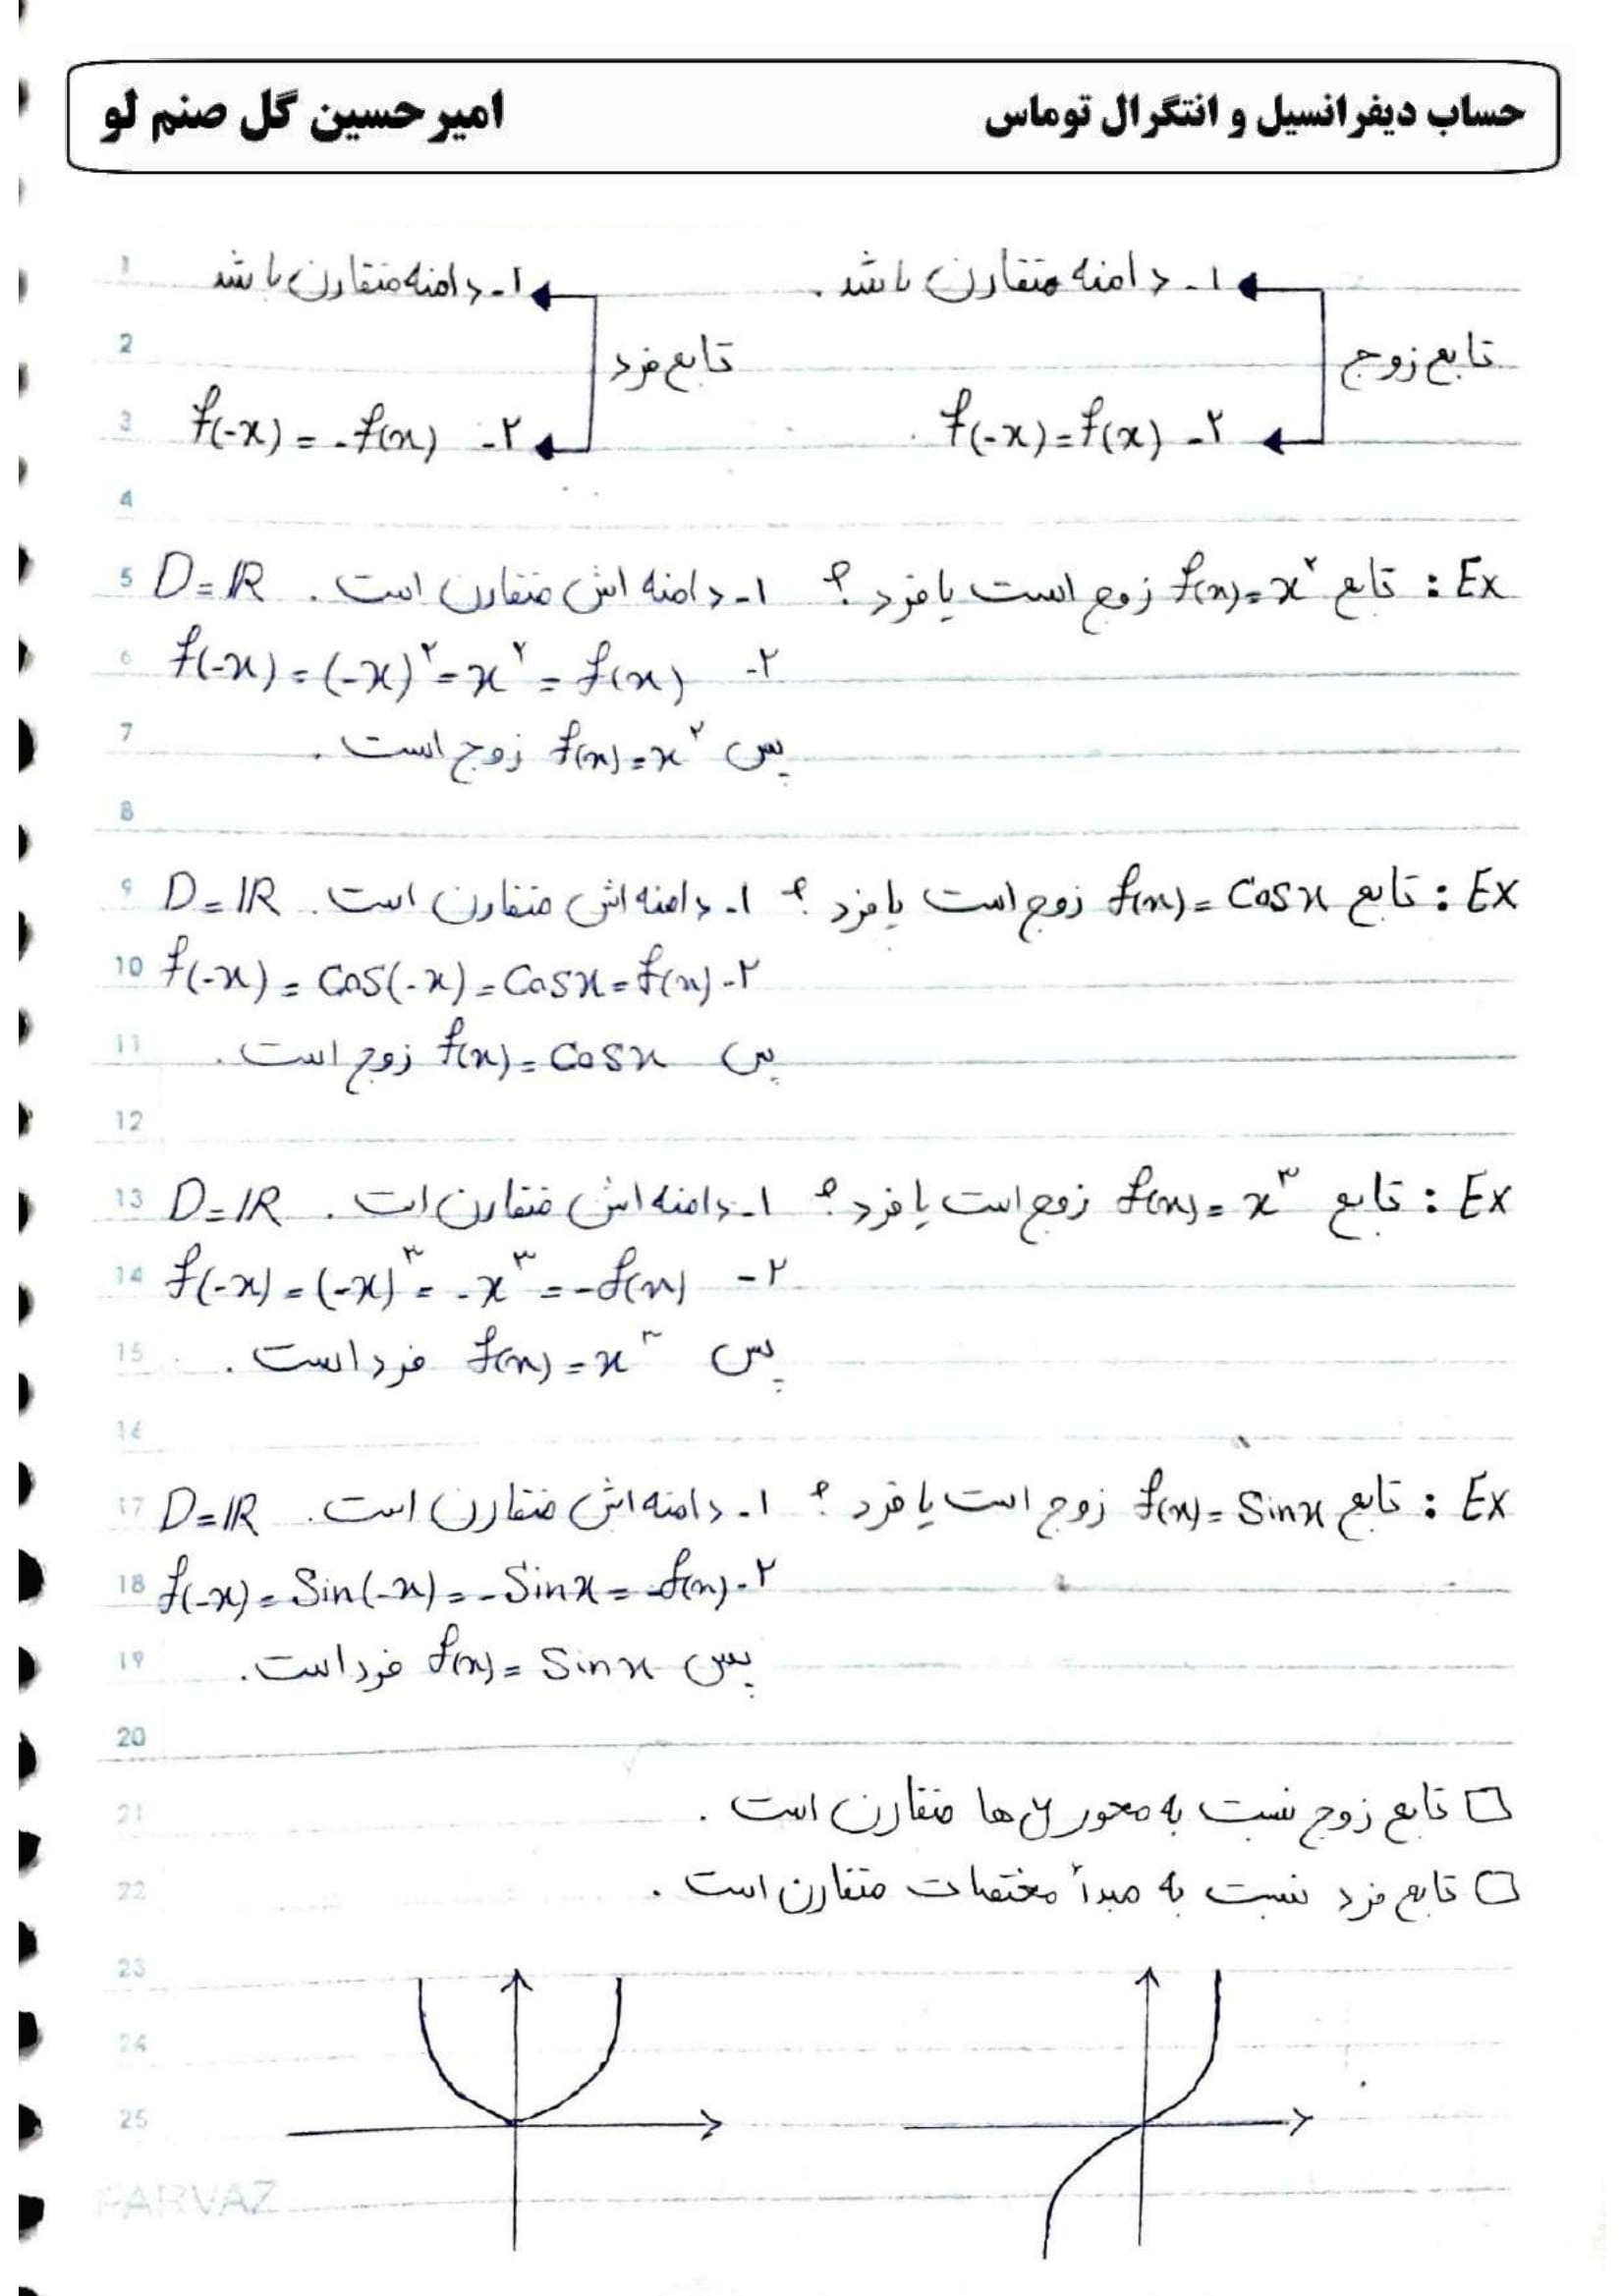 حساب دیفرانسیل و انتگرال توماس
امیرحسین گل صنم لو
1 ۱- دامنه متقارن باشد. ۱- دامنه متقارن باشد
2 تابع زوج تابع فرد
3 ۲- f(-x)=f(x) ۲- f(-x)=-f(x)
4
5 Ex: تابع f(x)=x² زوج است یا فرد؟ ۱- دامنه اش متقارن است. D=ℝ
6 ۲- f(-x)=(-x)²=x²=f(x)
7 پس f(x)=x² زوج است.
8
9 Ex: تابع f(x)=Cosx زوج است یا فرد؟ ۱- دامنه اش متقارن است. D=ℝ
10 ۲- f(-x)=Cos(-x)=Cosx=f(x)
11 پس f(x)=Cosx زوج است.
12
13 Ex: تابع f(x)=x³ زوج است یا فرد؟ ۱- دامنه اش متقارن است. D=ℝ
14 ۲- f(-x)=(-x)³=-x³=-f(x)
15 پس f(x)=x³ فرد است.
16
17 Ex: تابع f(x)=Sinx زوج است یا فرد؟ ۱- دامنه اش متقارن است. D=ℝ
18 ۲- f(-x)=Sin(-x)=-Sinx=-f(x)
19 پس f(x)=Sinx فرد است.
20
21 تابع زوج نسبت به محور yها متقارن است.
22 تابع فرد نسبت به مبدأ مختصات متقارن است.
23
24
25
PARVAZ